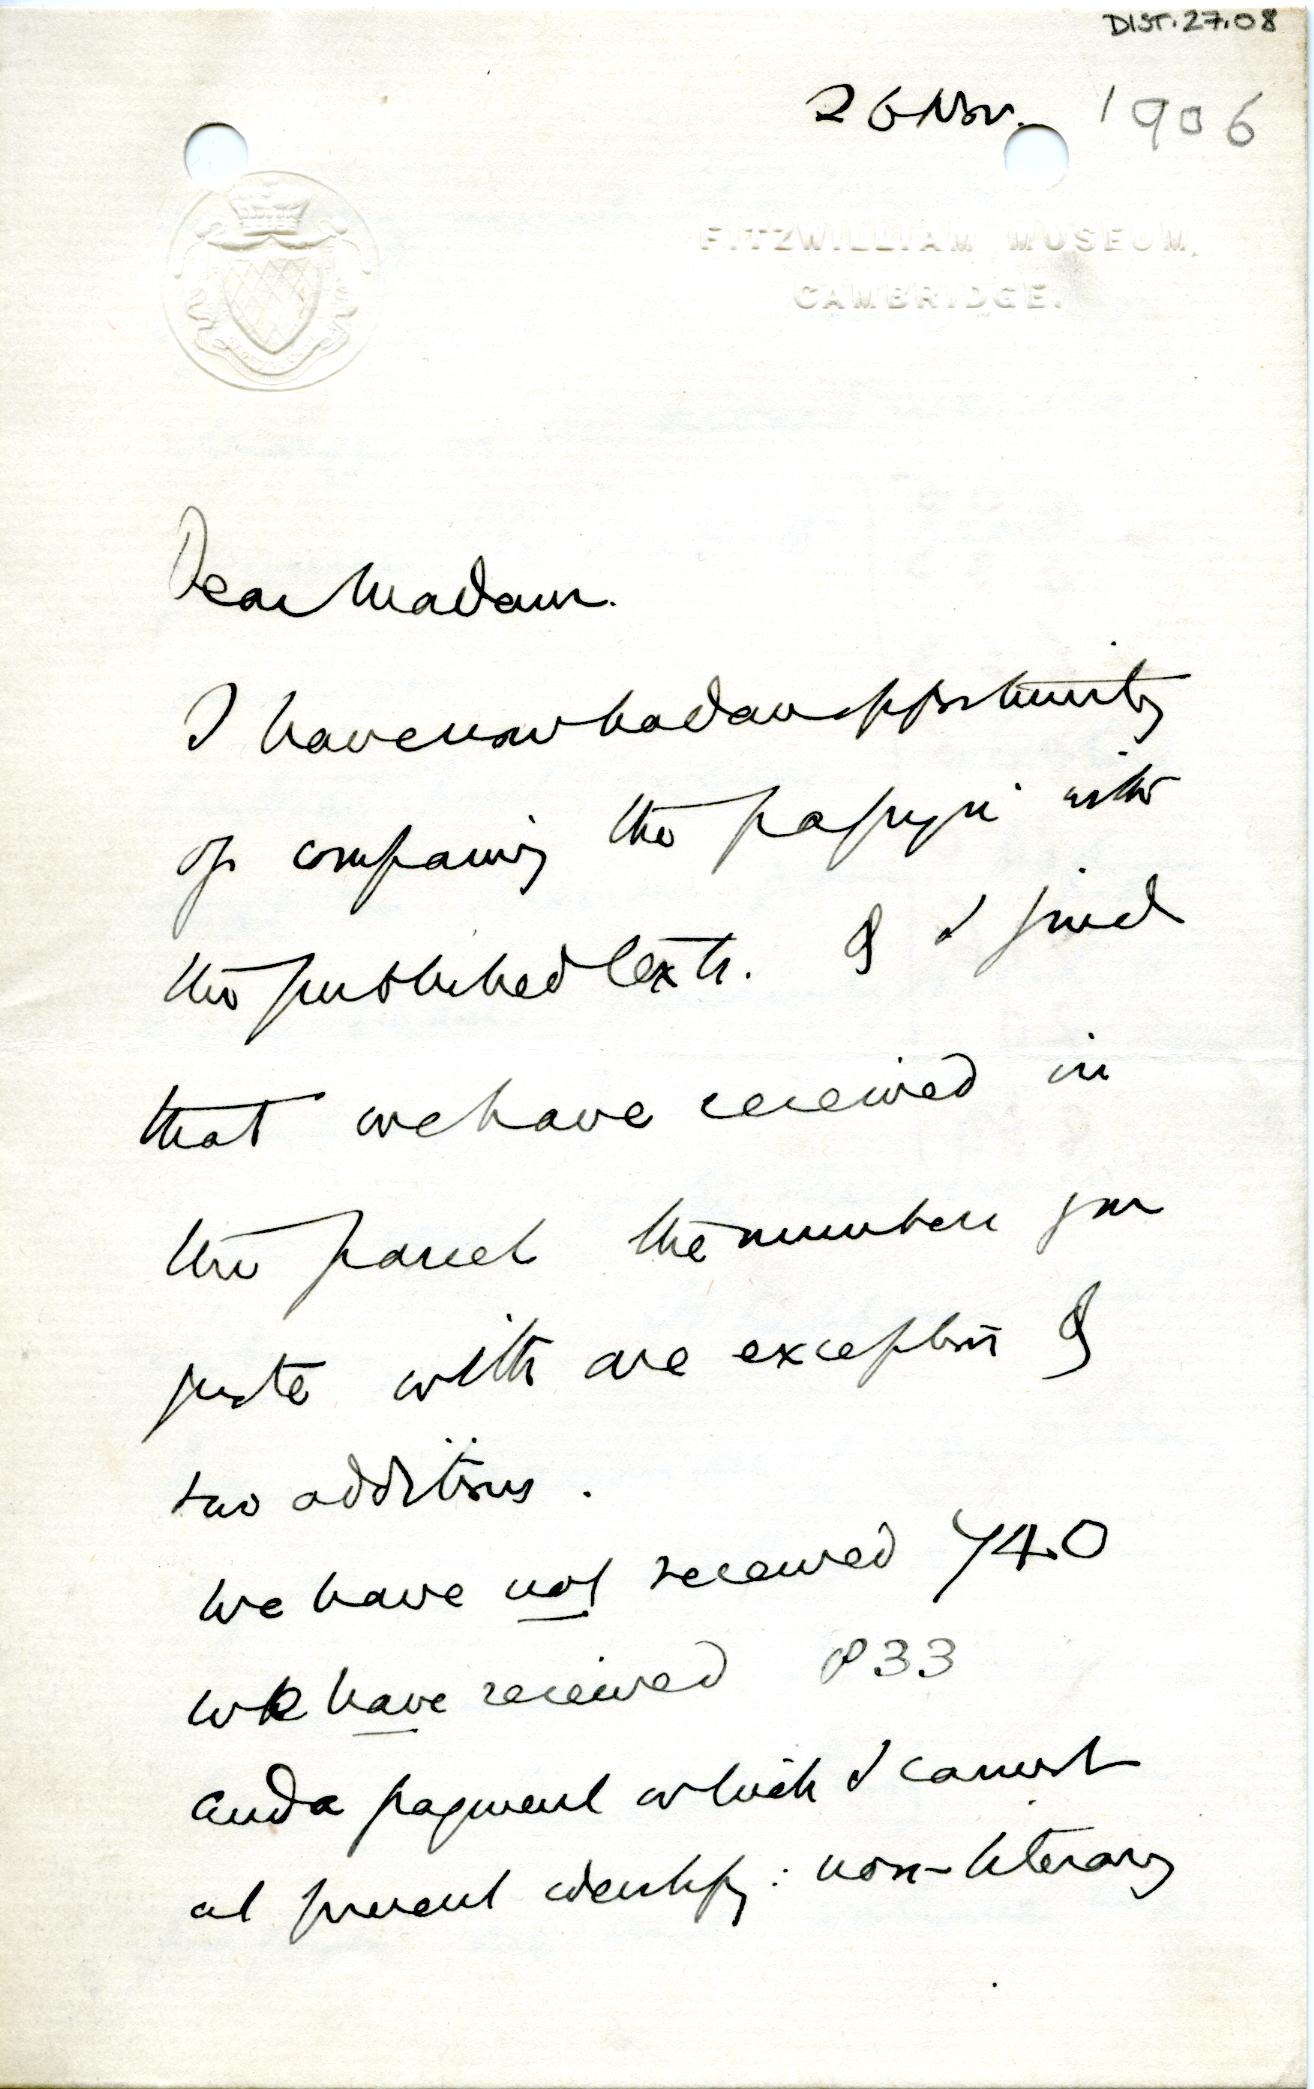 DIST.27.08
26 Nov. 1906
FITZWILLIAM MUSEUM,
CAMBRIDGE.
Dear Madam.
I have now had an opportunity
of comparing the papyri with
the published texts. & I find
that we have received in
the parcel the numbers you
quote with one exception &
two additions.
We have not received 740
we have received 833
and a fragment which I cannot
at present identify: non-literary